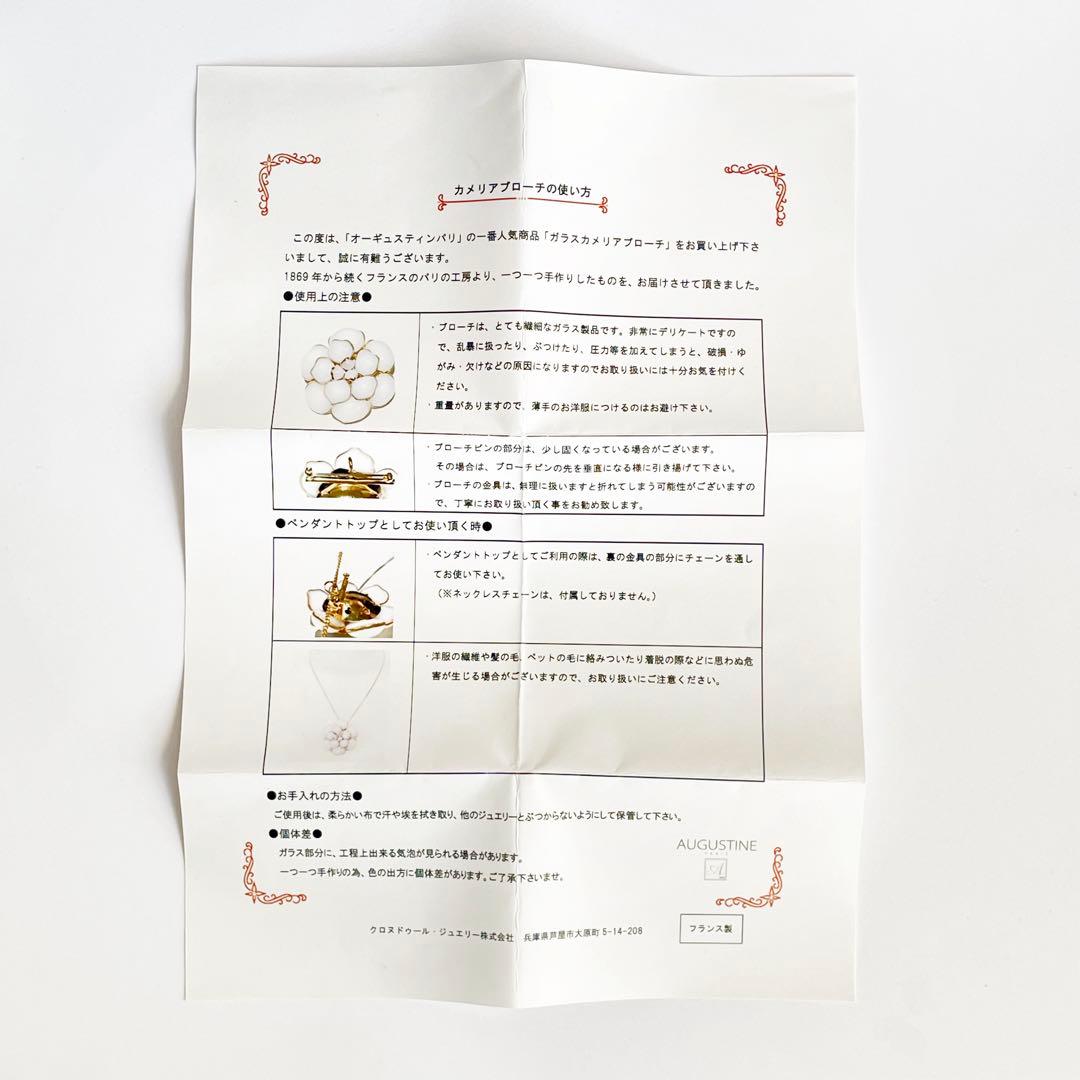 カメリアブローチの使い方
この度は、「オーギュスティンパリ」の一番人気商品「ガラスカメリアブローチ」をお買い上げ下さ
いまして、誠に有難うございます。
1869年から続くフランスのパリの工房より、一つ一つ手作りしたものを、お届けさせて頂きました。
●使用上の注意●
・ブローチは、とても繊細なガラス製品です。非常にデリケートですの
で、乱暴に扱ったり、ぶつけたり、圧力等を加えてしまうと、破損・ゆ
がみ・欠けなどの原因になりますのでお取り扱いには十分お気を付けく
ださい。
・重量がありますので、薄手のお洋服につけるのはお避け下さい。
・ブローチピンの部分は、少し固くなっている場合がございます。
その場合は、ブローチピンの先を垂直になる様に引き揚げて下さい。
・ブローチの金具は、無理に扱いますと折れてしまう可能性がございますの
で、丁寧にお取り扱い頂く事をお勧め致します。
●ペンダントトップとしてお使い頂く時●
・ペンダントトップとしてご利用の際は、裏の金具の部分にチェーンを通し
てお使い下さい。
（※ネックレスチェーンは、付属しておりません。）
・洋服の繊維や髪の毛、ペットの毛に絡みついたり着脱の際などに思わぬ危
害が生じる場合がございますので、お取り扱いにご注意ください。
●お手入れの方法●
ご使用後は、柔らかい布で汗や埃を拭き取り、他のジュエリーとぶつからないようにして保管して下さい。
●個体差●
ガラス部分に、工程上出来る気泡が見られる場合があります。
一つ一つ手作りの為、色の出方に個体差があります。ご了承下さいませ。
AUGUSTINE
PARIS
クロヌドゥール・ジュエリー株式会社 兵庫県芦屋市大原町5-14-208
フランス製